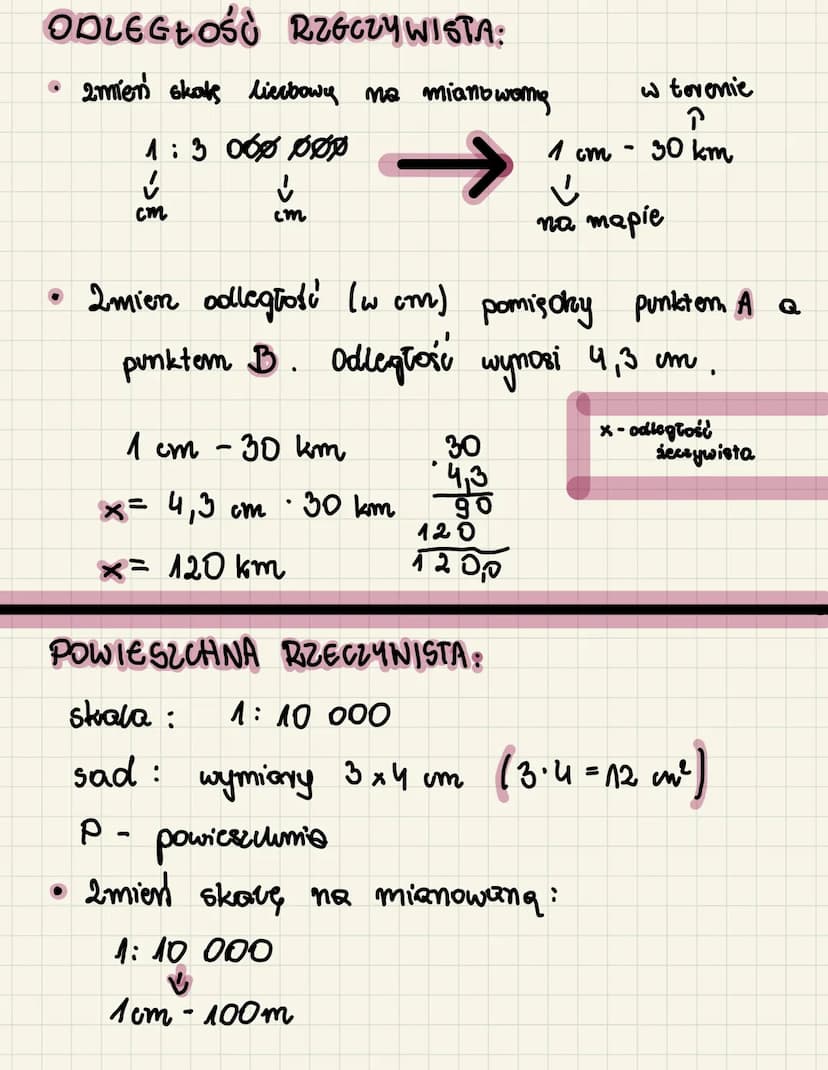 ODLEGŁOŚĆ RZECZYWISTA:
• zmień skalę liczbową na mianowaną
w terenie
1 : 3 000 000
1 cm - 30 km
cm cm
na mapie
• Zmierz odległość (w cm) pomiędzy punktem A a
punktem B. Odległość wynosi 4,3 cm.
1 cm - 30 km
x = 4,3 cm · 30 km
x = 120 km
30
· 4,3
90
120
120,0
x - odległość
rzeczywista
POWIESZCHNA RZECZYWISTA:
skala : 1 : 10 000
sad : wymiary 3 x 4 cm (3 · 4 = 12 cm²)
P - powieszchnia
• Zmień skalę na mianowaną :
1 : 10 000
1cm - 100m